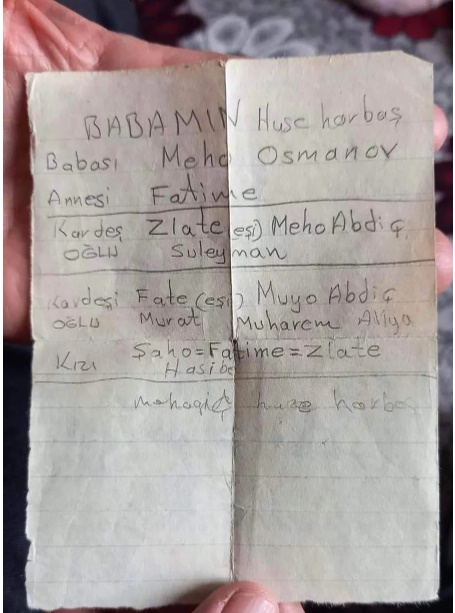 BABAMIN Huse harbaş
Babası Meho Osmanov
Annesi Fatime
Kardeş Zlate (eşi) Meho Abdiç
OĞLU Suleyman
Kardeşi Fate (eşi) Muyo Abdiç
OĞLU Murat Muharem Aliya
Kızı Şaho=Fatime=Zlate
Hasibe
huse harbaş